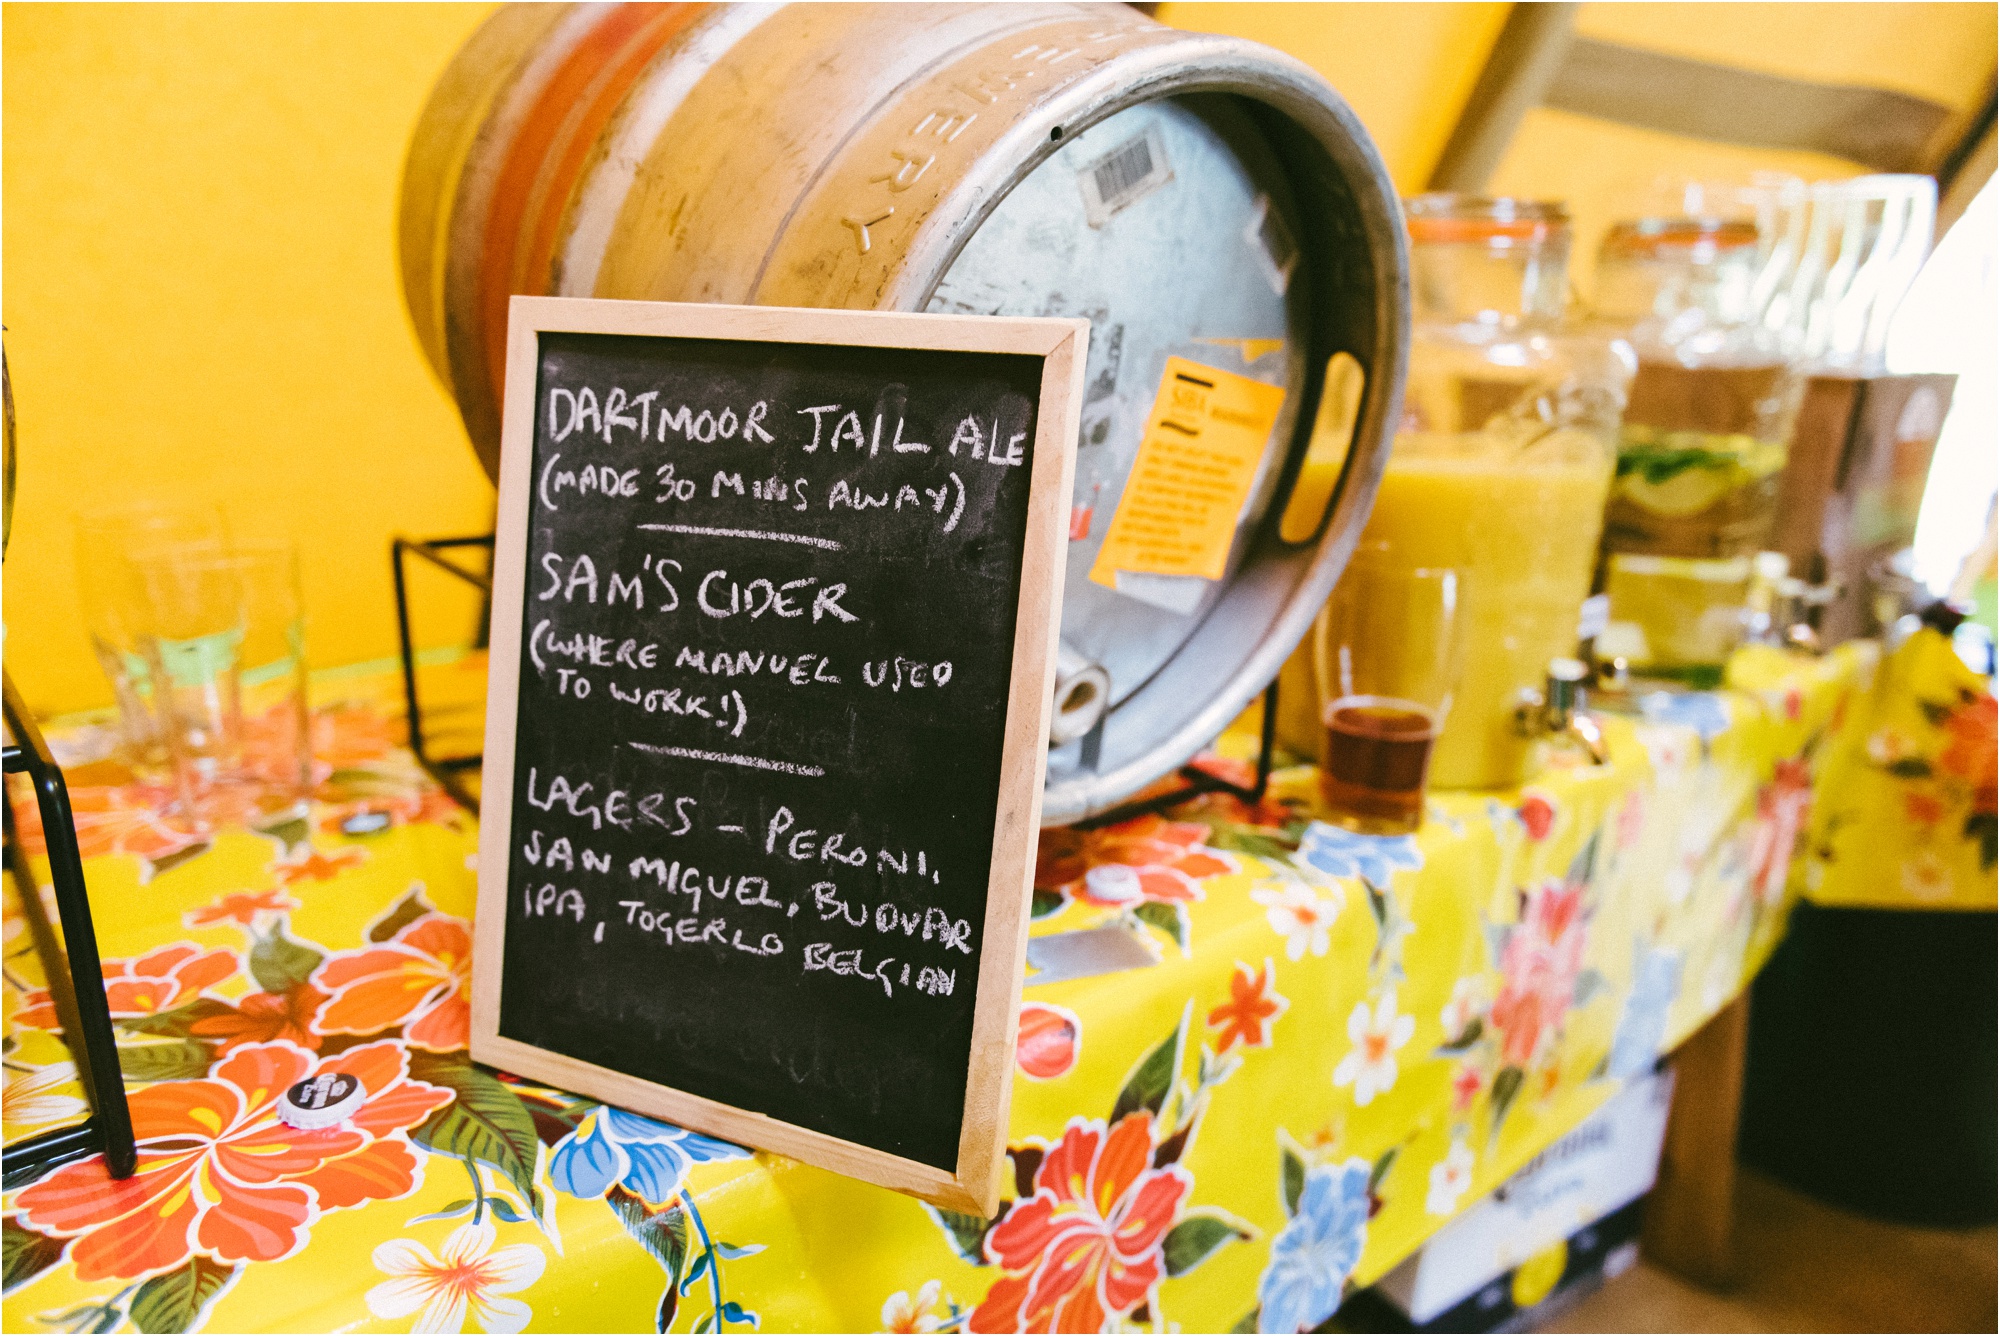 EWERY
DARTMOOR JAIL ALE
(MADE 30 MINS AWAY)
SAM'S CIDER
(WHERE MANUEL USED
TO WORK!)
LAGERS - PERONI,
SAN MIGUEL, BUDVAR
IPA, TOGERLO BELGIAN